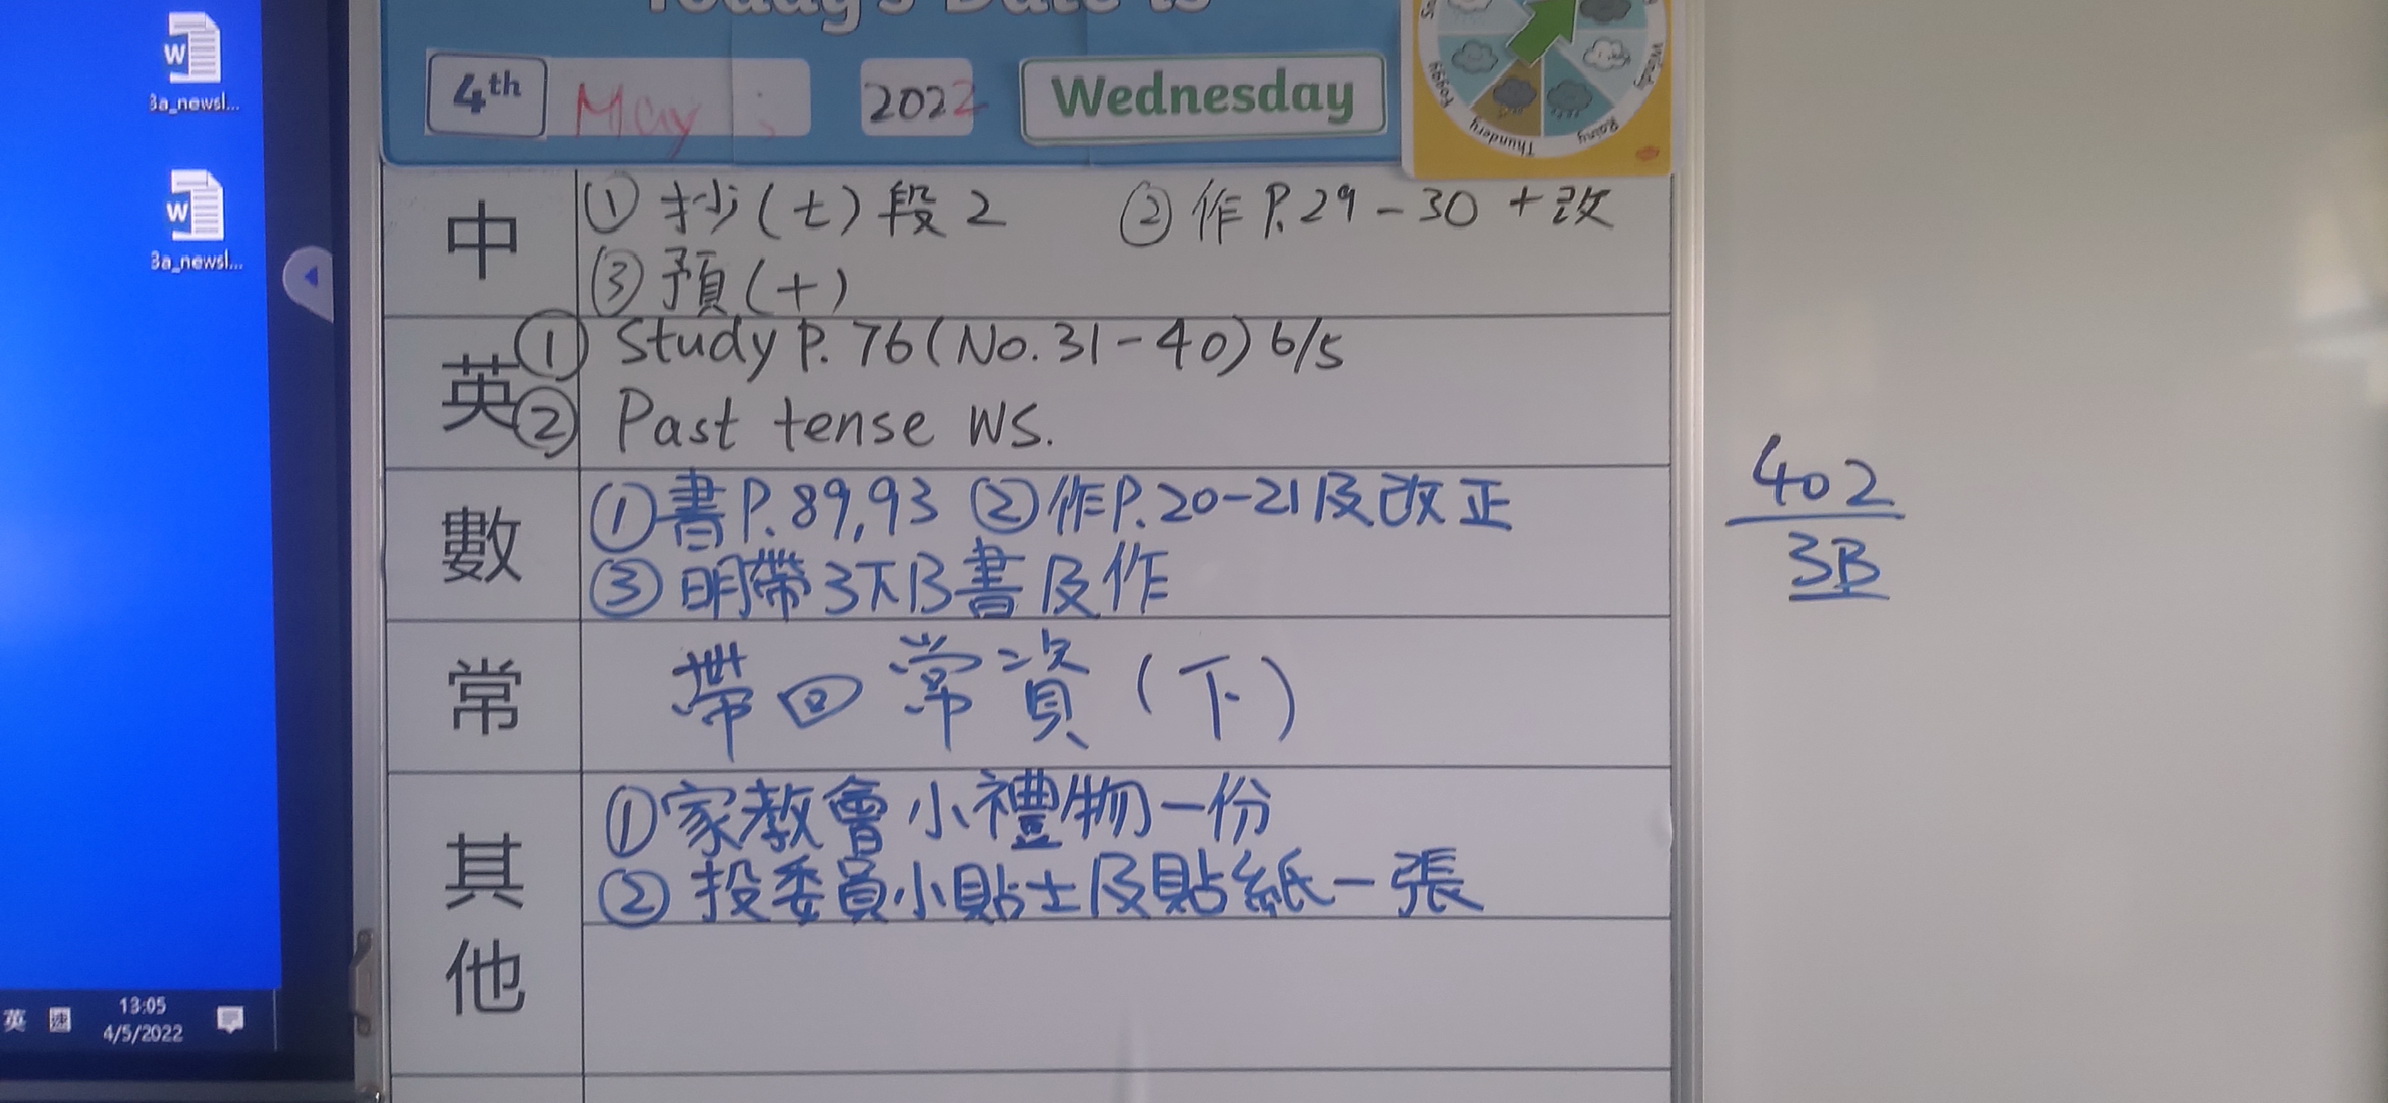 Today's Date is
4th May 2022 Wednesday
Foggy
Thundery
Rainy
Windy
3a_newsl...
3a_newsl...
中 ① 抄(七)段2 ② 作P.29-30+改
③ 預(十)
英 ① Study P.76(No.31-40) 6/5
② Past tense WS.
數 ①書P.89,93 ②作P.20-21及改正
③明帶3下B書及作
常 帶回常資(下)
其他 ①家教會小禮物一份
②投委員小貼士及貼紙一張
402
3B
英 速 13:05
4/5/2022